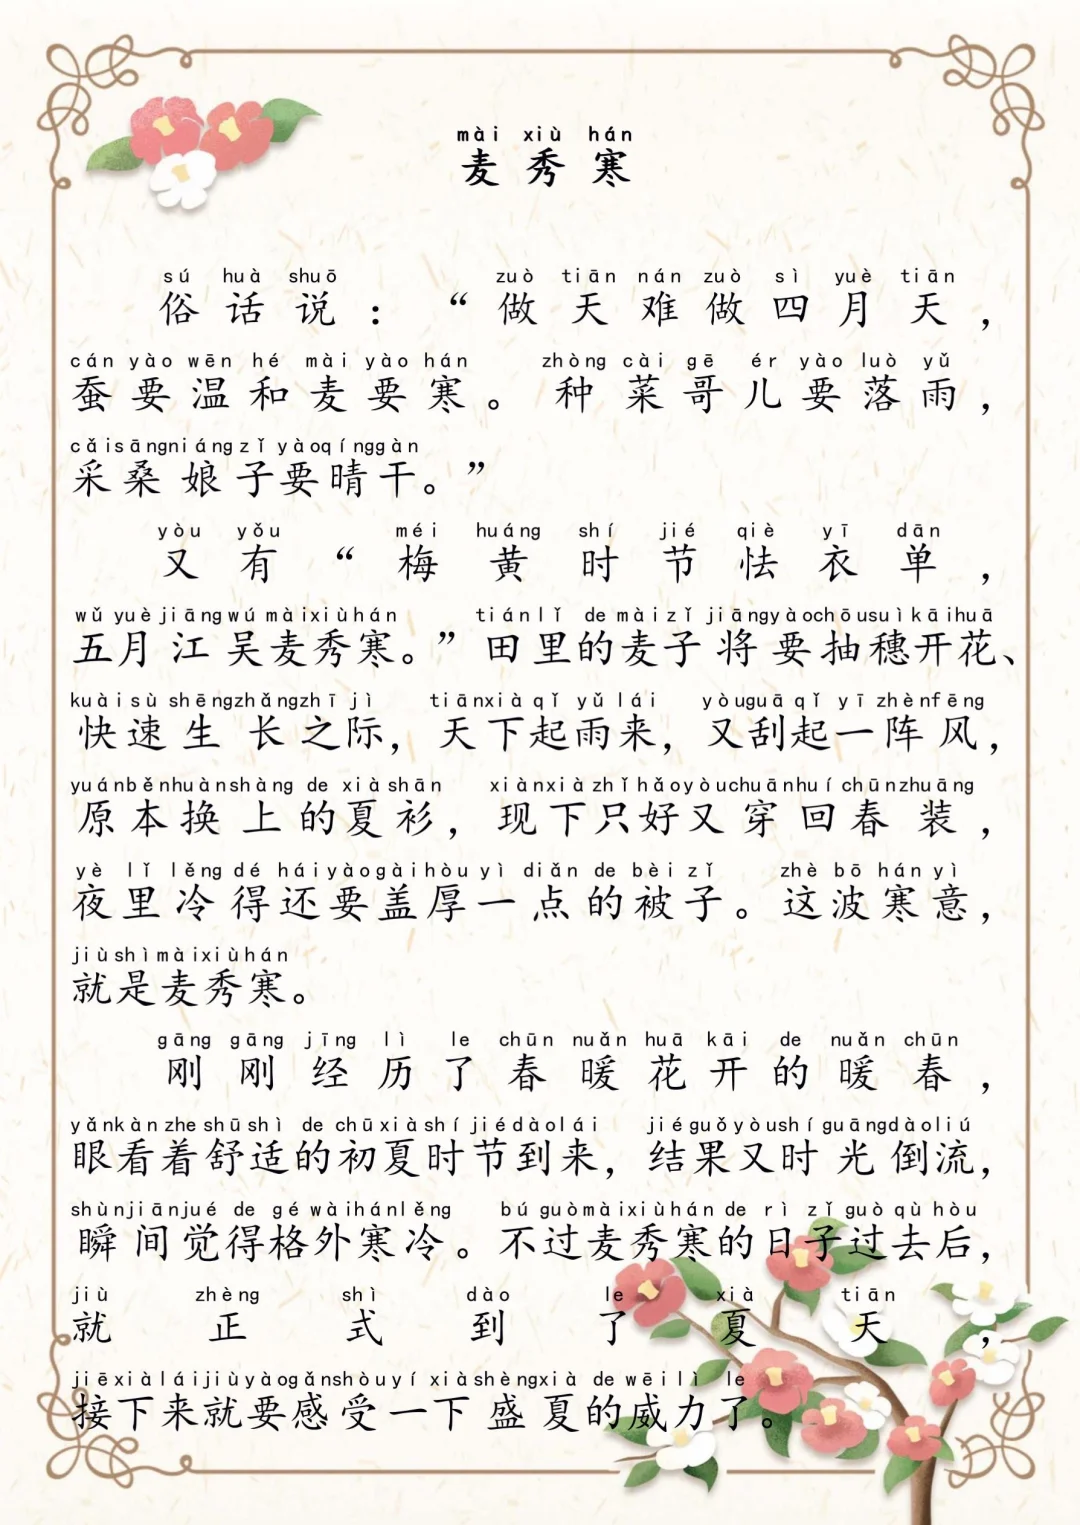 mài xiù hán
麦秀寒
sú huà shuō zuò tiān nán zuò sì yuè tiān
俗话说：“做天难做四月天，
cán yào wēn hé mài yào hán zhòng cài gē ér yào luò yǔ
蚕要温和麦要寒。种菜哥儿要落雨，
cǎi sāng niáng zǐ yào qíng gàn
采桑娘子要晴干。”
yòu yǒu méi huáng shí jié qiè yī dān
又有“梅黄时节怯衣单，
wǔ yuè jiāng wú mài xiù hán tián lǐ de mài zǐ jiāng yào chōu suì kāi huā
五月江吴麦秀寒。”田里的麦子将要抽穗开花、
kuài sù shēng zhǎng zhī jì tiān xià qǐ yǔ lái yòu guā qǐ yī zhèn fēng
快速生长之际，天下起雨来，又刮起一阵风，
yuán běn huàn shàng de xià shān xiàn xià zhǐ hǎo yòu chuān huí chūn zhuāng
原本换上的夏衫，现下只好又穿回春装，
yè lǐ lěng dé hái yào gài hòu yì diǎn de bèi zǐ zhè bō hán yì
夜里冷得还要盖厚一点的被子。这波寒意，
jiù shì mài xiù hán
就是麦秀寒。
gāng gāng jīng lì le chūn nuǎn huā kāi de nuǎn chūn
刚刚经历了春暖花开的暖春，
yǎn kàn zhe shū shì de chū xià shí jié dào lái jié guǒ yòu shí guāng dào liú
眼看着舒适的初夏时节到来，结果又时光倒流，
shùn jiān jué de gé wài hán lěng bú guò mài xiù hán de rì zǐ guò qù hòu
瞬间觉得格外寒冷。不过麦秀寒的日子过去后，
jiù zhèng shì dào le xià tiān
就正式到了夏天，
jiē xià lái jiù yào gǎn shòu yí xià shèng xià de wēi lì le
接下来就要感受一下盛夏的威力了。